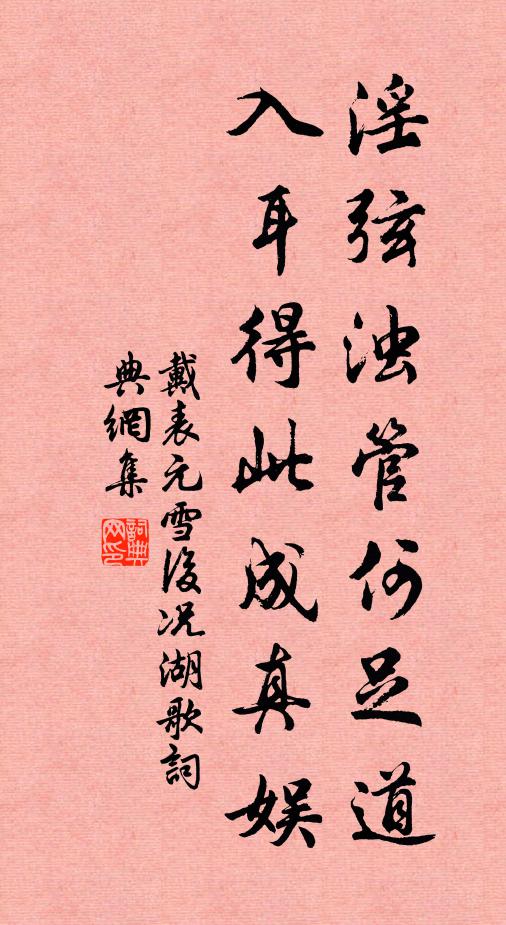 淫弦浊管何足道
入耳得此成真娱
戴表元雪後况湖歌詞
典網集
詞典网印